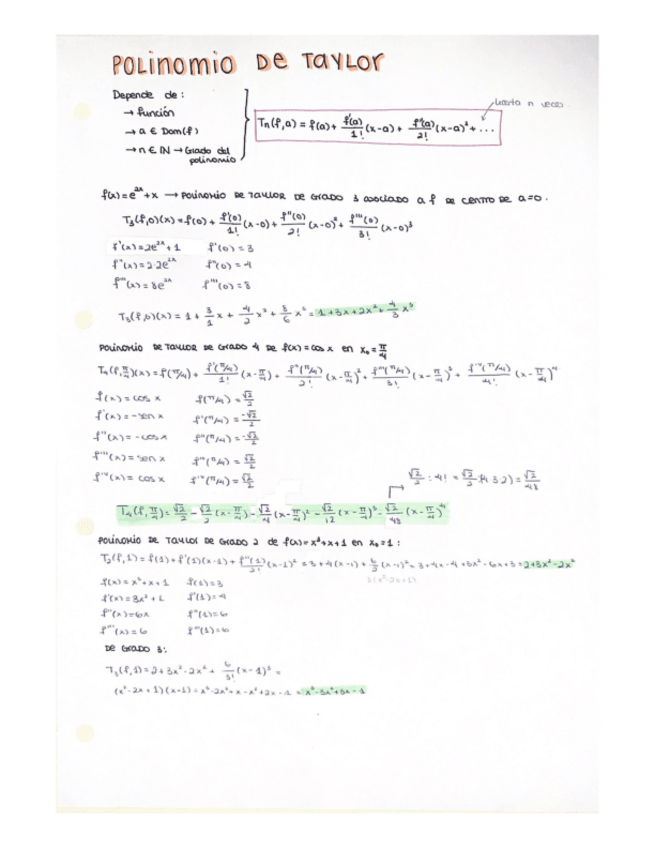 POLINOMIO DE TAYLOR
Depende de:
→ función
→ a ∈ Dom(f)
→ n ∈ IN → Grado del polinomio
Tn(f,a) = f(a) + f'(a)/1! (x-a) + f''(a)/2! (x-a)² + ...
hasta n veces
f(x)=e^2x + x → POLINOMIO DE TAYLOR DE GRADO 3 asociado a f DE CENTRO DE a=0.
T3(f,0)(x) = f(0) + f'(0)/1! (x-0) + f''(0)/2! (x-0)² + f'''(0)/3! (x-0)³
f'(x)=2e^2x + 1 f'(0) = 3
f''(x)=2·2e^2x f''(0) = 4
f'''(x) = 8e^2x f'''(0) = 8
T3(f,0)(x) = 1 + 3/1 x + 4/2 x² + 8/6 x³ = 1+3x+2x²+4/3 x³
POLINOMIO DE TAYLOR DE GRADO 4 DE f(x)=cos x en x0 = π/4
T4(f,π/4)(x) = f(π/4) + f'(π/4)/1! (x-π/4) + f''(π/4)/2! (x-π/4)² + f'''(π/4)/3! (x-π/4)³ + f'ᵛ(π/4)/4! (x-π/4)⁴
f(x) = cos x f(π/4) = √2/2
f'(x) = -sen x f'(π/4) = -√2/2
f''(x) = -cos x f''(π/4) = -√2/2
f'''(x) = sen x f'''(π/4) = √2/2
f'ᵛ(x) = cos x f'ᵛ(π/4) = √2/2
√2/2 : 4! = √2/2 :(4·3·2) = √2/48
T4(f,π/4) = √2/2 - √2/2 (x-π/4) - √2/4 (x-π/4)² - √2/12 (x-π/4)³ - √2/48 (x-π/4)⁴
POLINOMIO DE TAYLOR DE GRADO 2 de f(x)=x³+x+1 en x0=1:
T2(f,1) = f(1) + f'(1)(x-1) + f''(1)/2! (x-1)² = 3+4(x-1) + 6/2 (x-1)² = 3+4x-4+3x²-6x+3 = 2+3x²-2x
f(x) = x³+x+1 f(1)=3
f'(x) = 3x²+1 f'(1)=4
f''(x)=6x f''(1)=6
f'''(x) = 6
DE GRADO 3:
T3(f,1) = 2+3x²-2x + 6/3! (x-1)³ =
(x²-2x+1)(x-1) = x³-2x²+x-x²+2x-1 = x³-3x²+3x-1